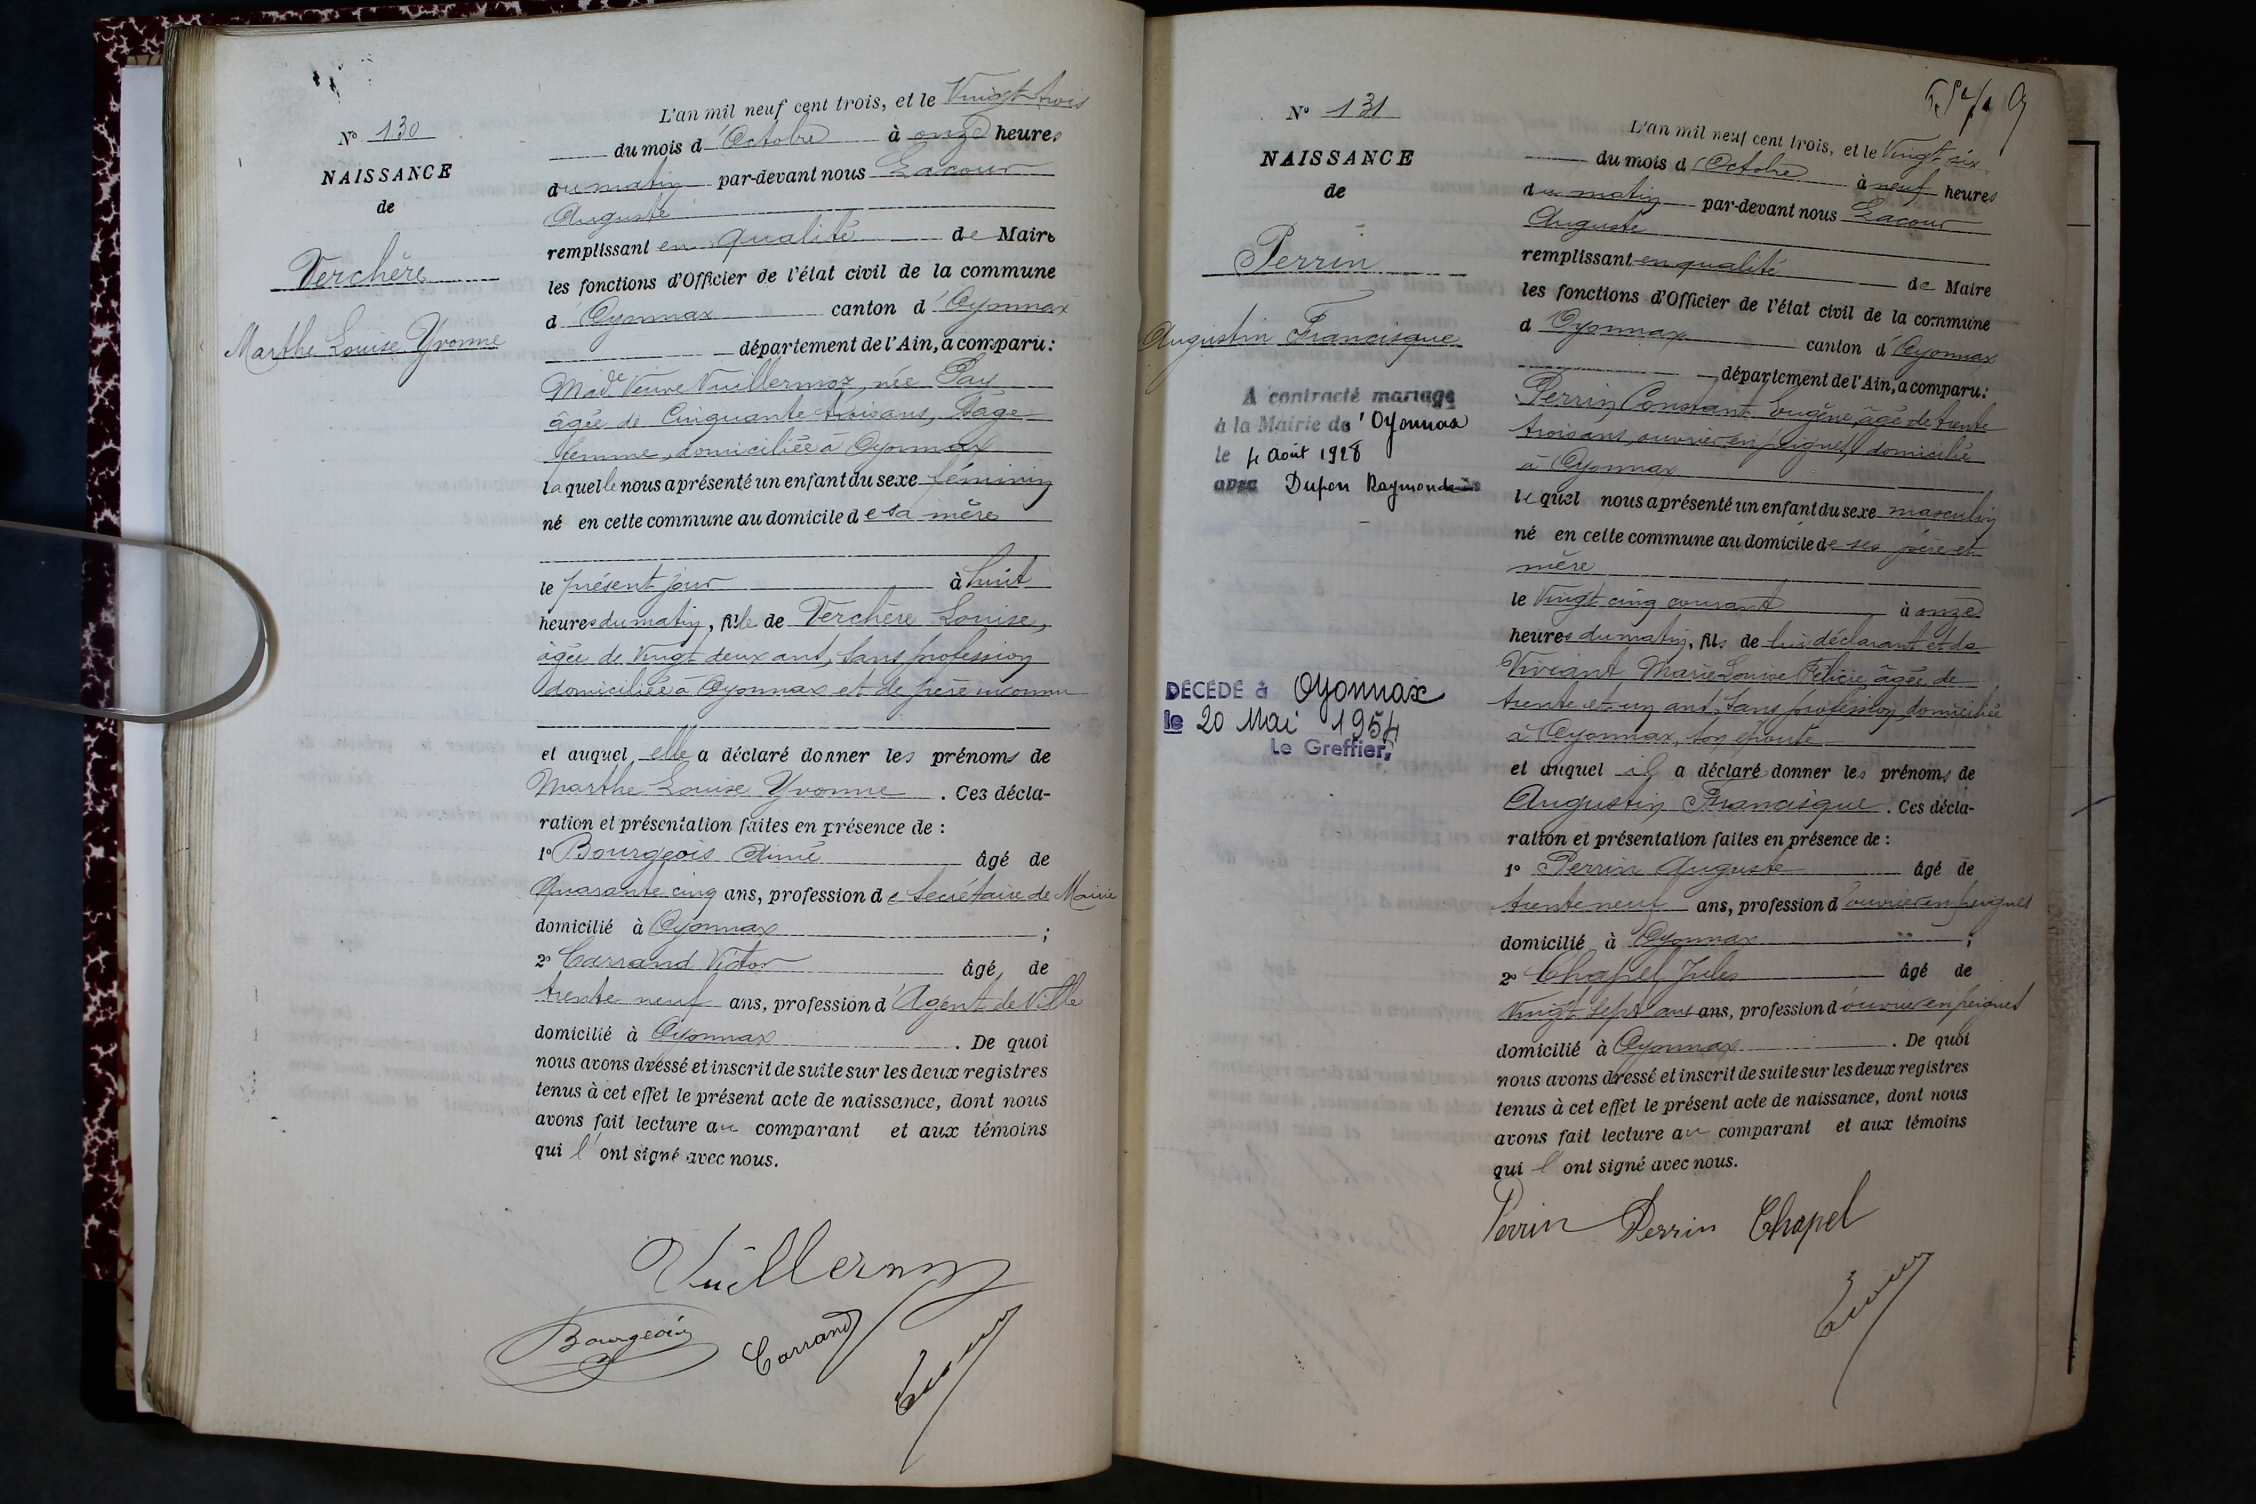 N° 130
NAISSANCE
de
Verchère
Marthe Louise Yvonne
L'an mil neuf cent trois, et le Vingt trois
du mois d'Octobre à onze heures
du matin par-devant nous Lacour
Auguste
remplissant en qualité de Maire
les fonctions d'Officier de l'état civil de la commune
d Oyonnax canton d'Oyonnax
département de l'Ain, a comparu :
Made Veuve Vuillermoz, née Pay
âgée de Cinquante trois ans, Sage
femme, domiciliée à Oyonnax
laquelle nous a présenté un enfant du sexe féminin
né en cette commune au domicile de sa mère
le présent jour à huit
heures du matin, fille de Verchère Louise,
âgée de Vingt deux ans, sans profession
domiciliée à Oyonnax et de père inconnu
et auquel elle a déclaré donner les prénoms de
Marthe Louise Yvonne. Ces décla-
ration et présentation faites en présence de :
1° Bourgeois Aimé âgé de
Quarante cinq ans, profession de Secrétaire de Mairie
domicilié à Oyonnax ;
2° Carrand Victor âgé de
trente neuf ans, profession d'Agent de Ville
domicilié à Oyonnax. De quoi
nous avons dressé et inscrit de suite sur les deux registres
tenus à cet effet le présent acte de naissance, dont nous
avons fait lecture au comparant et aux témoins
qui l'ont signé avec nous.
Vuillermoz
Bourgeois Carrand
N° 131
NAISSANCE
de
Perrin
Augustin Francisque
A contracté mariage
à la Mairie de 'Oyonnax
le 4 Août 1928
avec Dupon Raymonde
DÉCÉDÉ à Oyonnax
le 20 Mai 1954
Le Greffier,
L'an mil neuf cent trois, et le Vingt six
du mois d'Octobre à neuf heures
du matin par-devant nous Lacour
Auguste
remplissant en qualité de Maire
les fonctions d'Officier de l'état civil de la commune
d Oyonnax canton d'Oyonnax
département de l'Ain, a comparu :
Perrin Constant Eugène, âgé de trente
trois ans, ouvrier en peignes, domicilié
à Oyonnax
lequel nous a présenté un enfant du sexe masculin
né en cette commune au domicile de ses père et
mère
le Vingt cinq courant à onze
heures du matin, fils de lui déclarant et de
Viviant Marie Louise Félicie, âgée de
trente et un ans, sans profession, domiciliée
à Oyonnax, son épouse
et auquel il a déclaré donner les prénoms de
Augustin Francisque. Ces décla-
ration et présentation faites en présence de :
1° Perrin Auguste âgé de
trente neuf ans, profession d'ouvrier en peignes
domicilié à Oyonnax ;
2° Chapel Jules âgé de
Vingt Sept ans ans, profession d'ouvrier en peignes
domicilié à Oyonnax. De quoi
nous avons dressé et inscrit de suite sur les deux registres
tenus à cet effet le présent acte de naissance, dont nous
avons fait lecture au comparant et aux témoins
qui l'ont signé avec nous.
Perrin Perrin Chapel